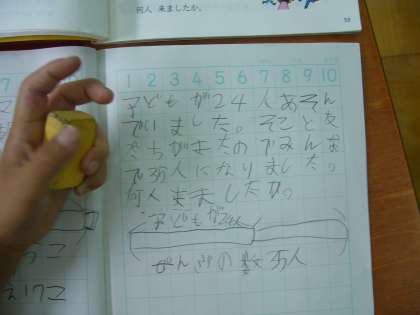 何人 来ましたか。
53
1 2 3 4 5 6 7 8 9 10
子どもが24人あそん
でいました。そこと友
だちがきたのでみんな
で35人になりました。
何人来ましたか。
子どもが24人
ぜんぶの数35人